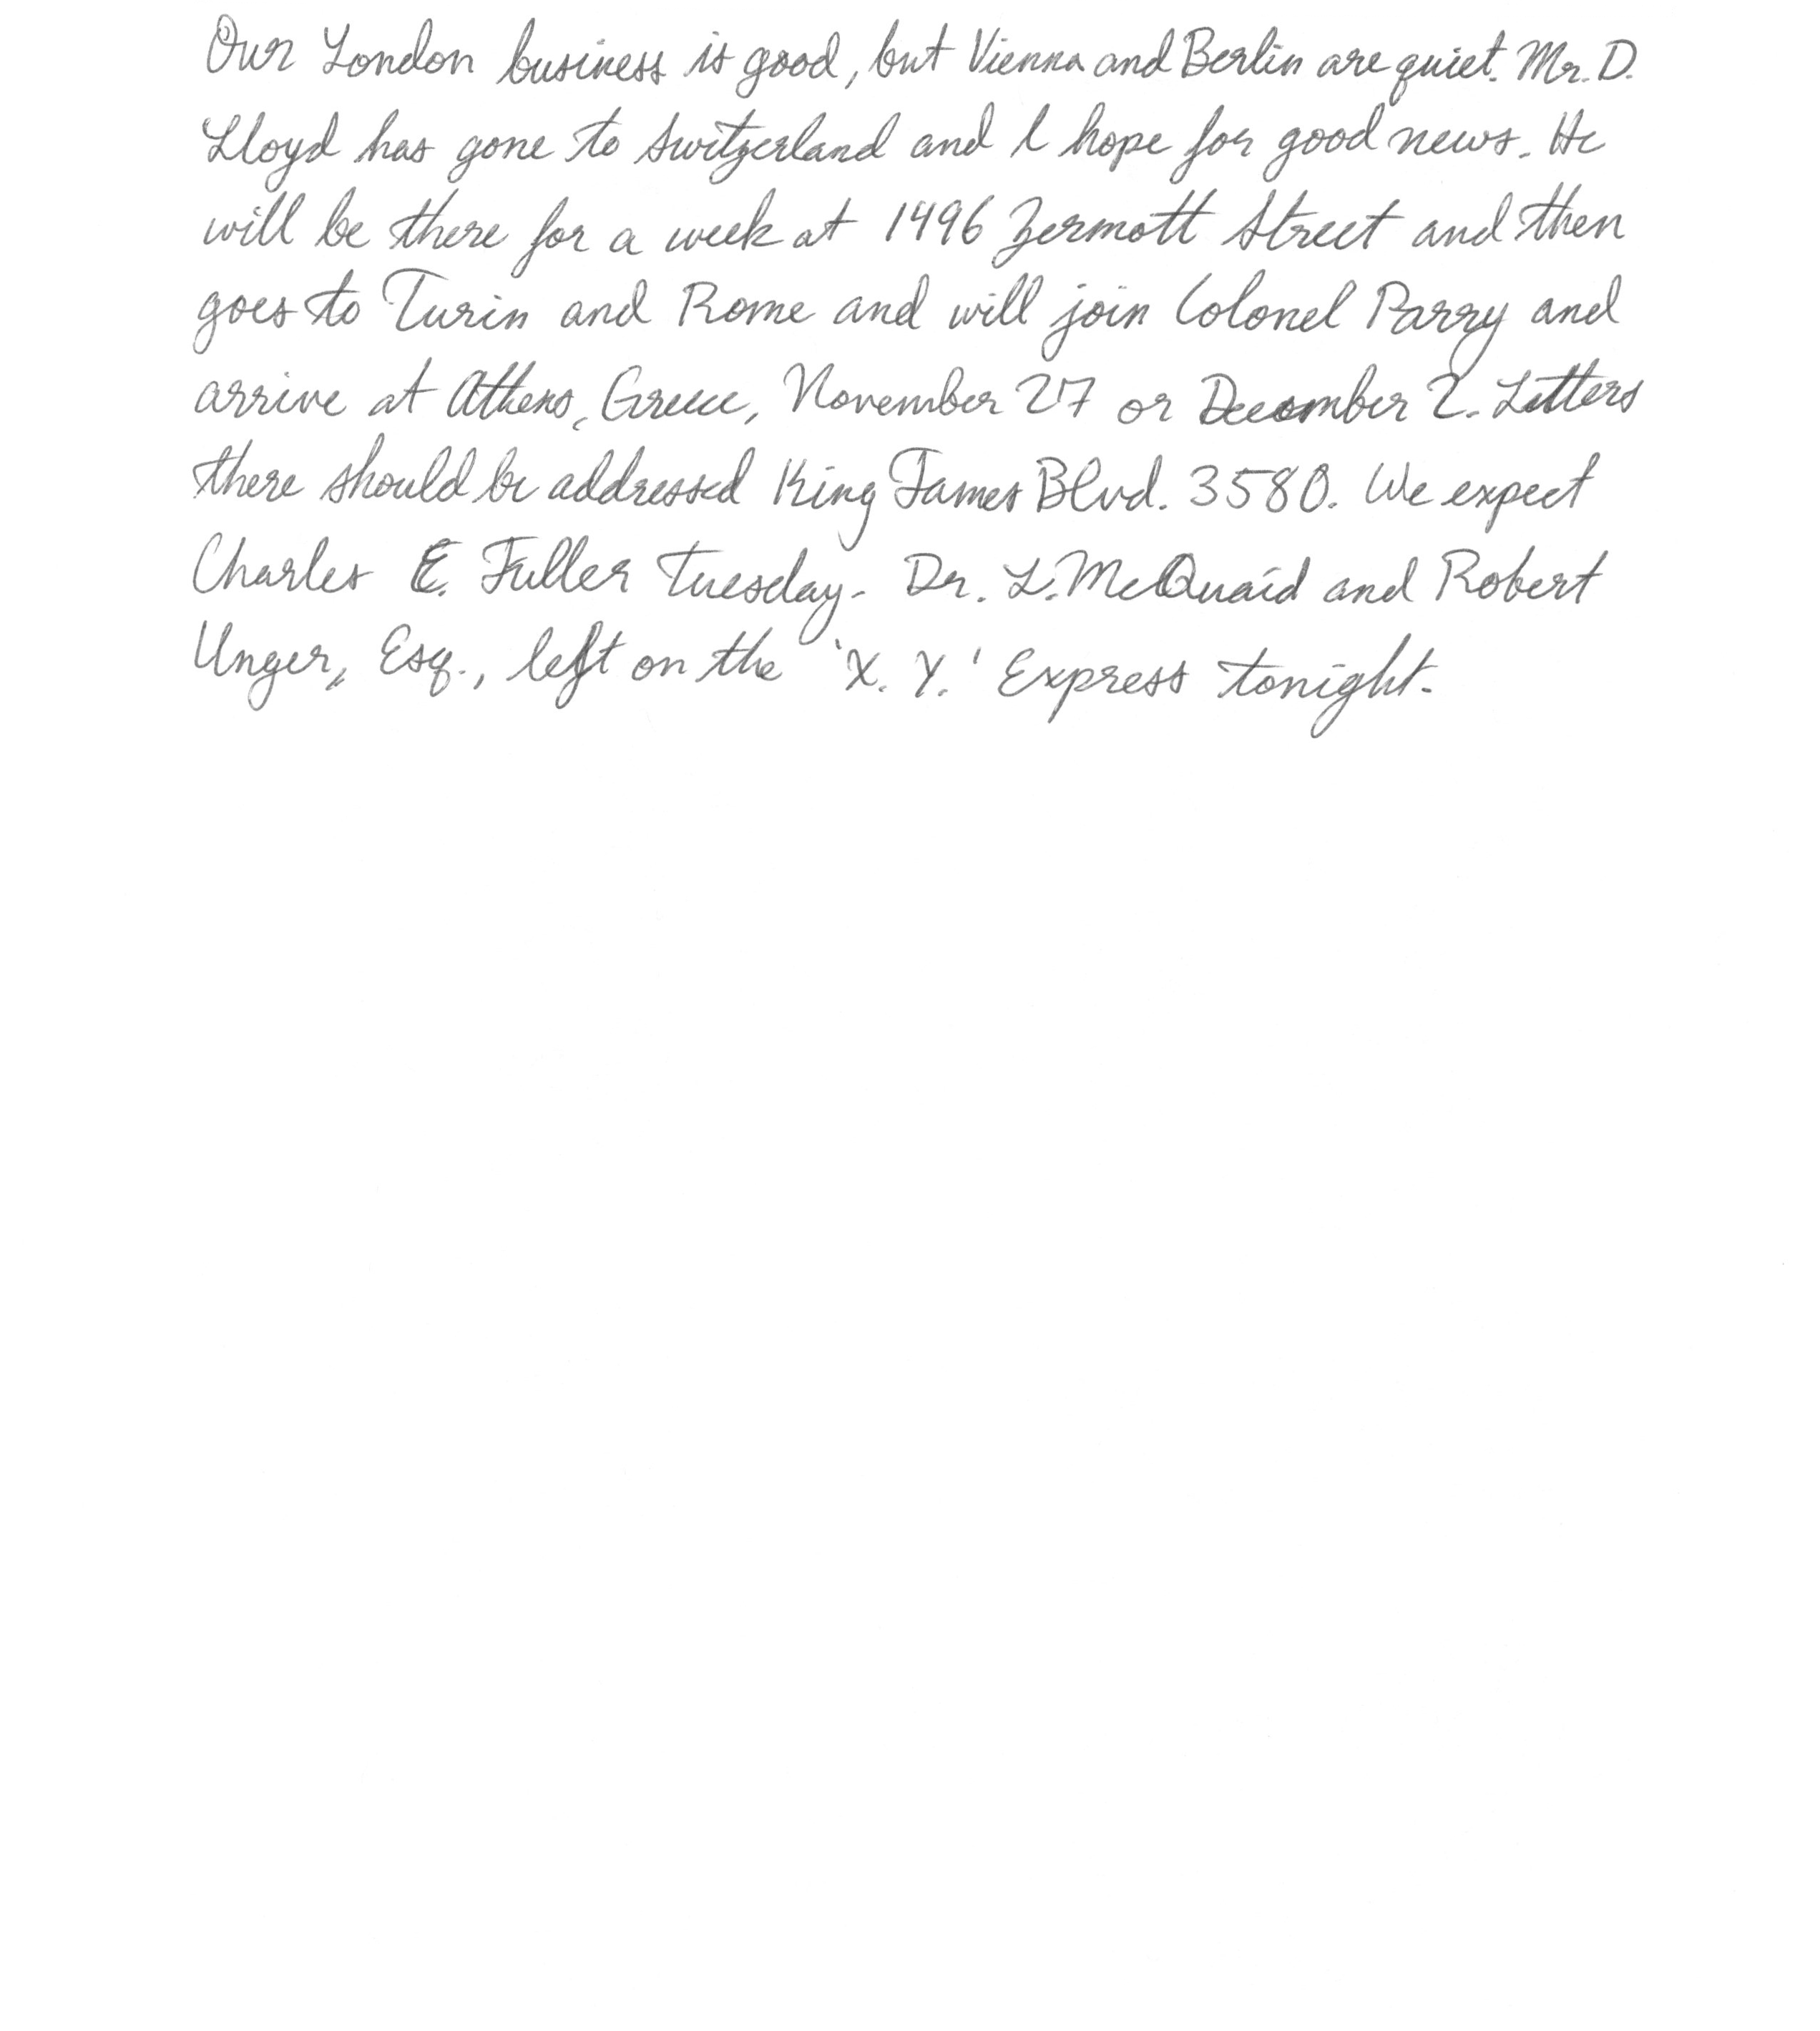 Our London business is good, but Vienna and Berlin are quiet. Mr. D.
Lloyd has gone to Switzerland and I hope for good news. He
will be there for a week at 1496 Zermott Street and then
goes to Turin and Rome and will join Colonel Parry and
arrive at Athens, Greece, November 27 or December 2. Letters
there should be addressed King James Blvd. 3580. We expect
Charles E. Fuller Tuesday. Dr. L. McQuaid and Robert
Unger, Esq., left on the 'X. Y.' Express tonight.